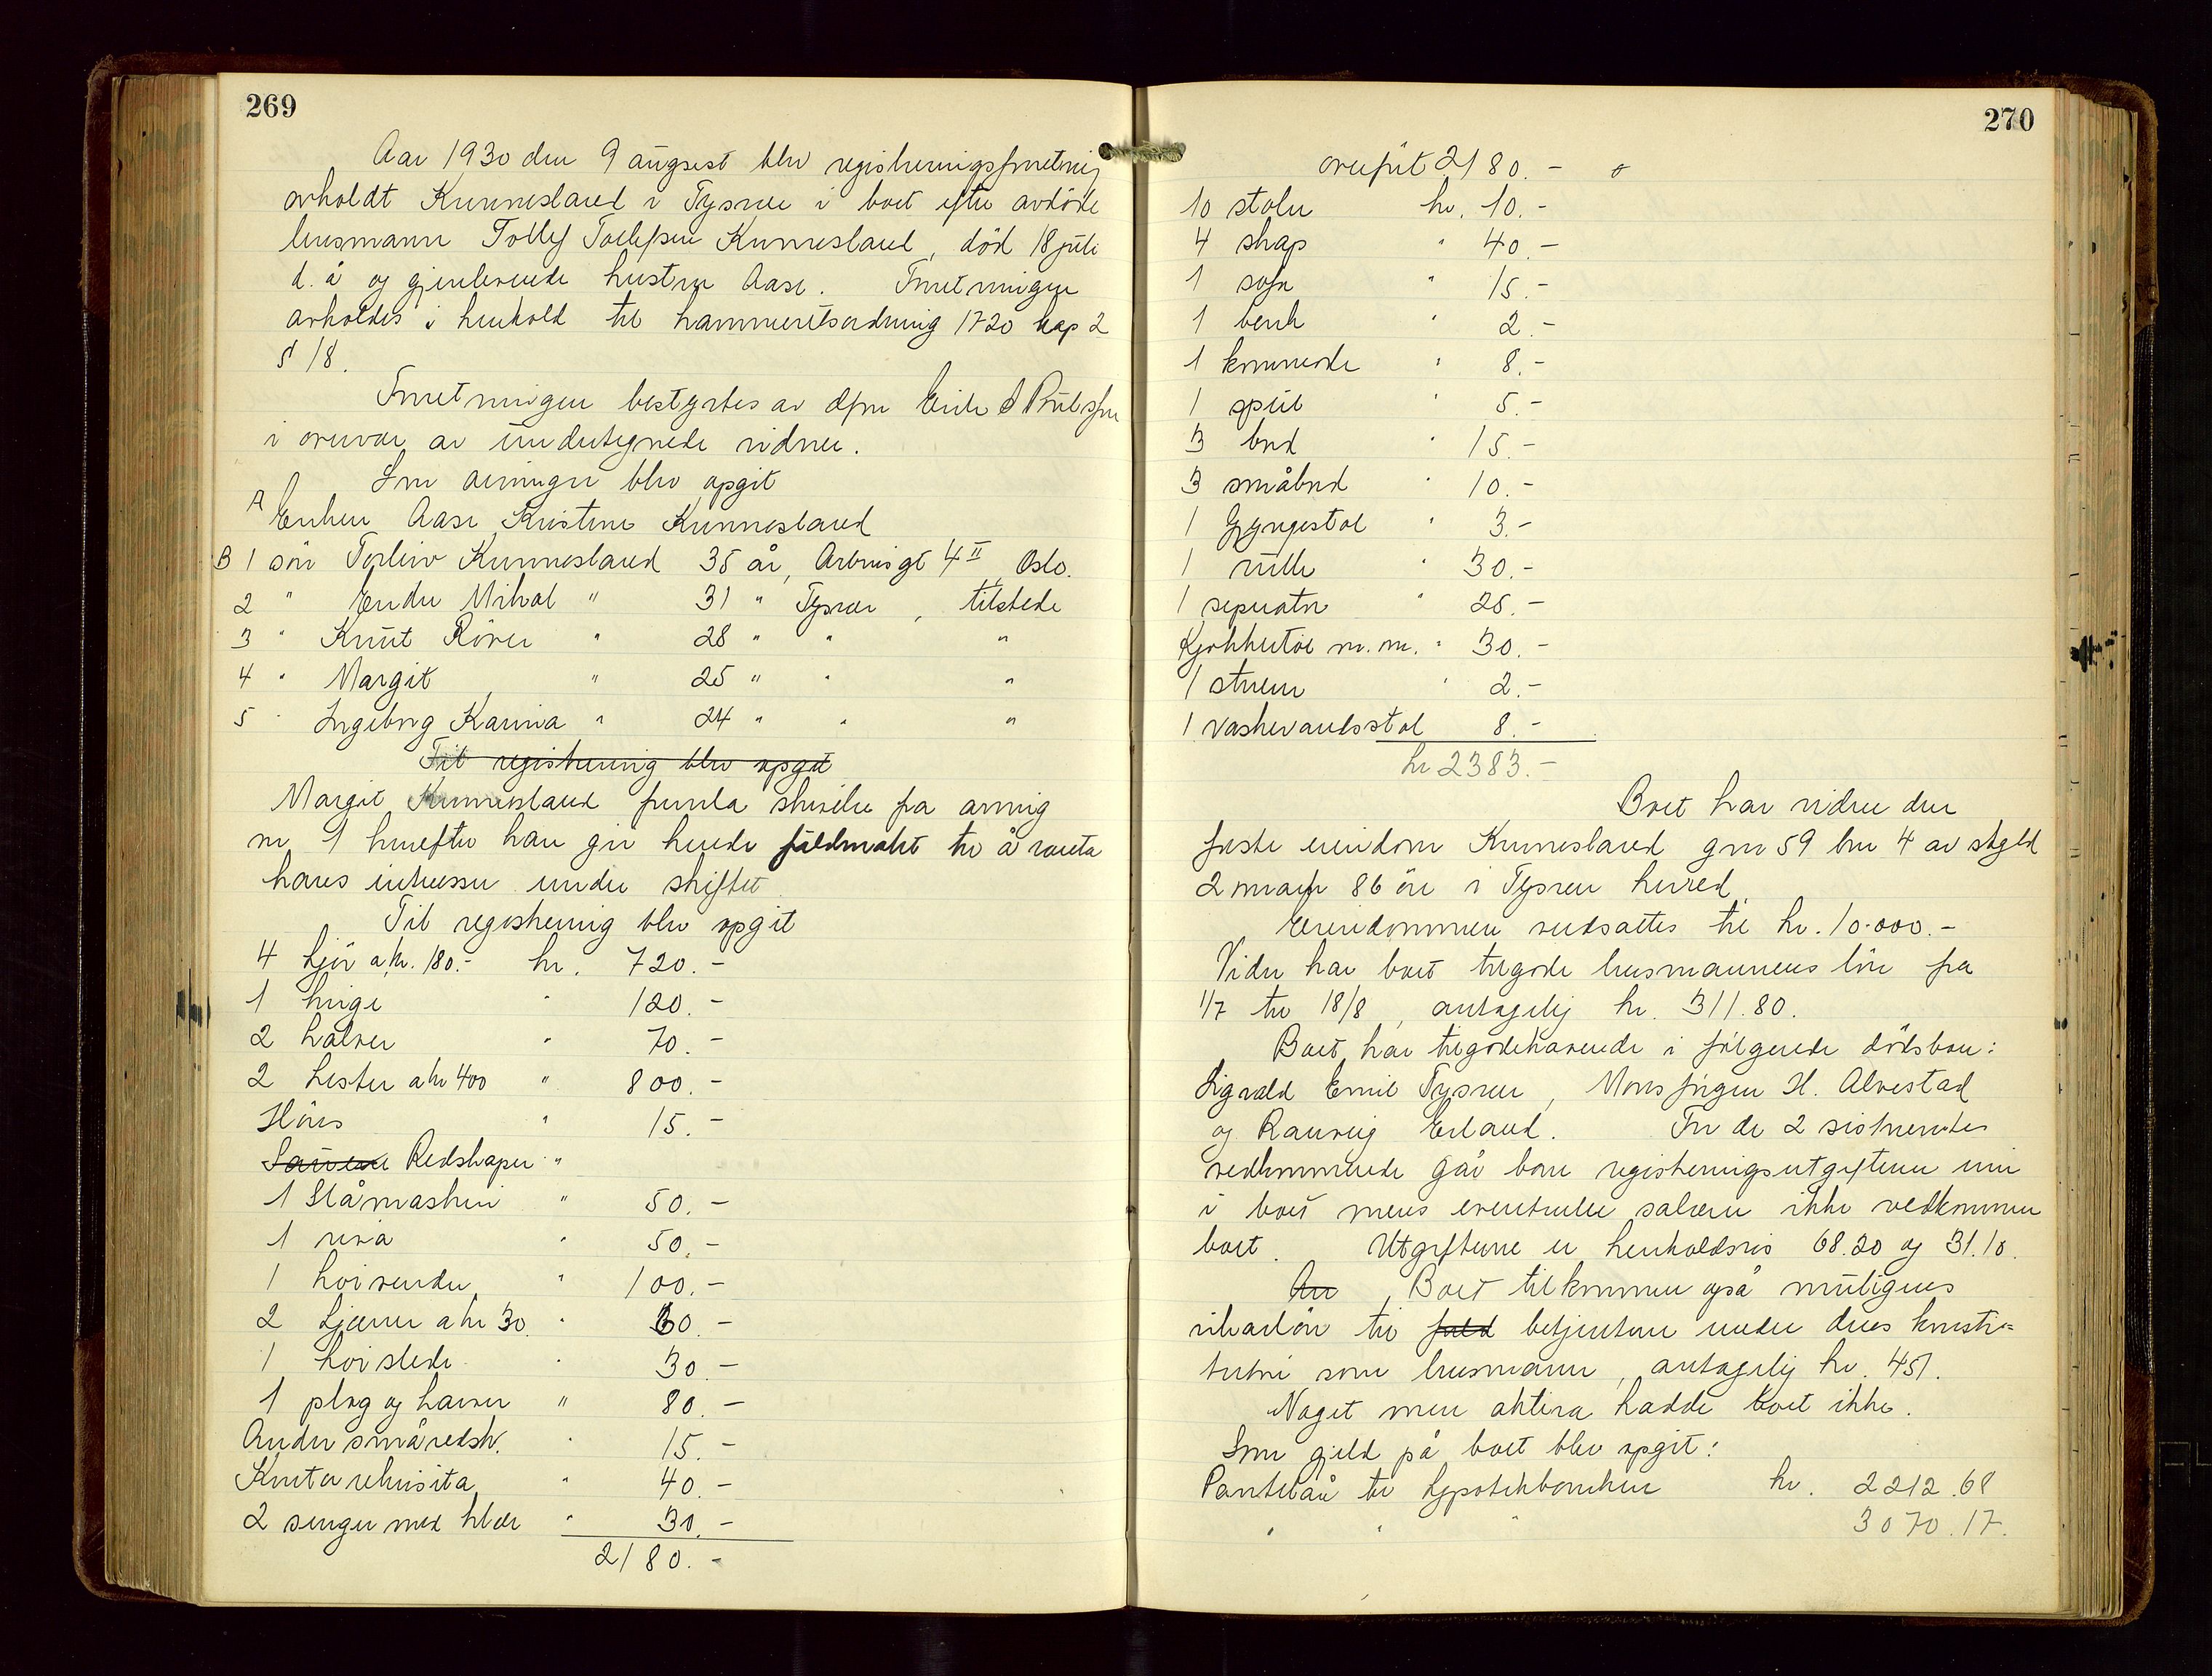 269
Aar 1930 den 9 august blev registreringsforretning
avholdt Kunnesland i Tysvær i boet efter avdöde
lensmann Tollef Tollefsen Kunnesland, död 18 juli
d.å og gjenlevende hustru Aase. Forretningen
avholdes i henhold til kammerretsordning 1720 kap 2
§ 18.
Forretningen bestyrtes av
i overvær av undertegnede vidner.
Som arvinger blev opgit
A Enken Aase Kristine Kunnesland
B 1 sön Torleiv Kunnesland 35 år, Arbinsgt 4 II, Oslo.
2 " Endre Mikal " 31 " Tysvær, tilstede
3 " Knut Röver " 28 " " "
4 " Margit " 25 " " "
5 " Ingeborg Karina " 24 " " "
Til registrering blev opgit
Margit Kunnesland forela skrivelse fra arving
nr 1 hvorefter han gir hende fuldmakt til å vareta
hans interesser under skiftet
Til registrering blev opgit
4 kjör a kr. 180.- kr. 720.-
1 kvige " 120.-
2 kalver " 70.-
2 hester a kr 400 " 800.-
Höns " 15.-
Sauene Redskaper "
1 Slåmaskin " 50.-
1 riva " 50.-
1 höivender " 100.-
2 kjærrer a kr 30. " 60.-
1 höislede " 30.-
1 plog og harver " 80.-
Andre småredsk. " 15.-
Kontorrekvisita " 40.-
2 senger med klær " 30.-
2180.-
270
overfört 2180.-
10 stoler kr. 10.-
4 skap " 40.-
1 sofa " 15.-
1 benk " 2.-
1 kommode " 8.-
1 speil " 5.-
3 bord " 15.-
3 småbord " 10.-
1 Gyngestol " 3.-
1 rulle " 30.-
1 separator " 25.-
Kjøkkentöi m.m. " 30.-
1 strem " 2.-
1 vaskevandsstol 8.-
kr 2383.-
Boet har videre den
faste eiendom Kunnesland gnr 59 bnr 4 av skyld
2 mark 86 öre i Tysvær herred.
Eiendommen verdsattes til kr. 10.000.-
Videre har boet tilgode lensmannens lön fra
1/7 til 18/8, antagelig kr. 311.80.
Boet har tilgodehavende i fölgende dödsboer:
Sigvald Emil Tysvær, Mons Jörgen H. Alvestad
og Ranveig Erland. For de 2 sistnevntes
vedkommende går bare registreringsutgiftene inn
i boet mens eventuelle salærer ikke vedkommer
boet. Utgiftene er henholdsvis 68.20 og 31.10.
An Boet tilkommer også muligens
vikarlön til fuld betjenten under dens konsti=
tution som lensmann, antagelig kr. 451.
Noget mere aktiva hadde boet ikke.
Som gjeld på boet blev opgit:
Pantelån til Hypotekbanken kr. 2212.68
" " " 3070.17.